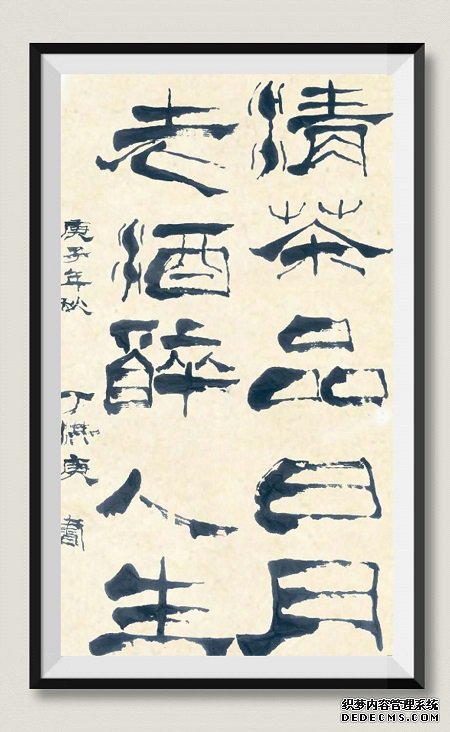 清茶品日月
老酒醉人生
庚子年秋 丁 庚 書
织梦内容管理系统
DEDECMS.COM